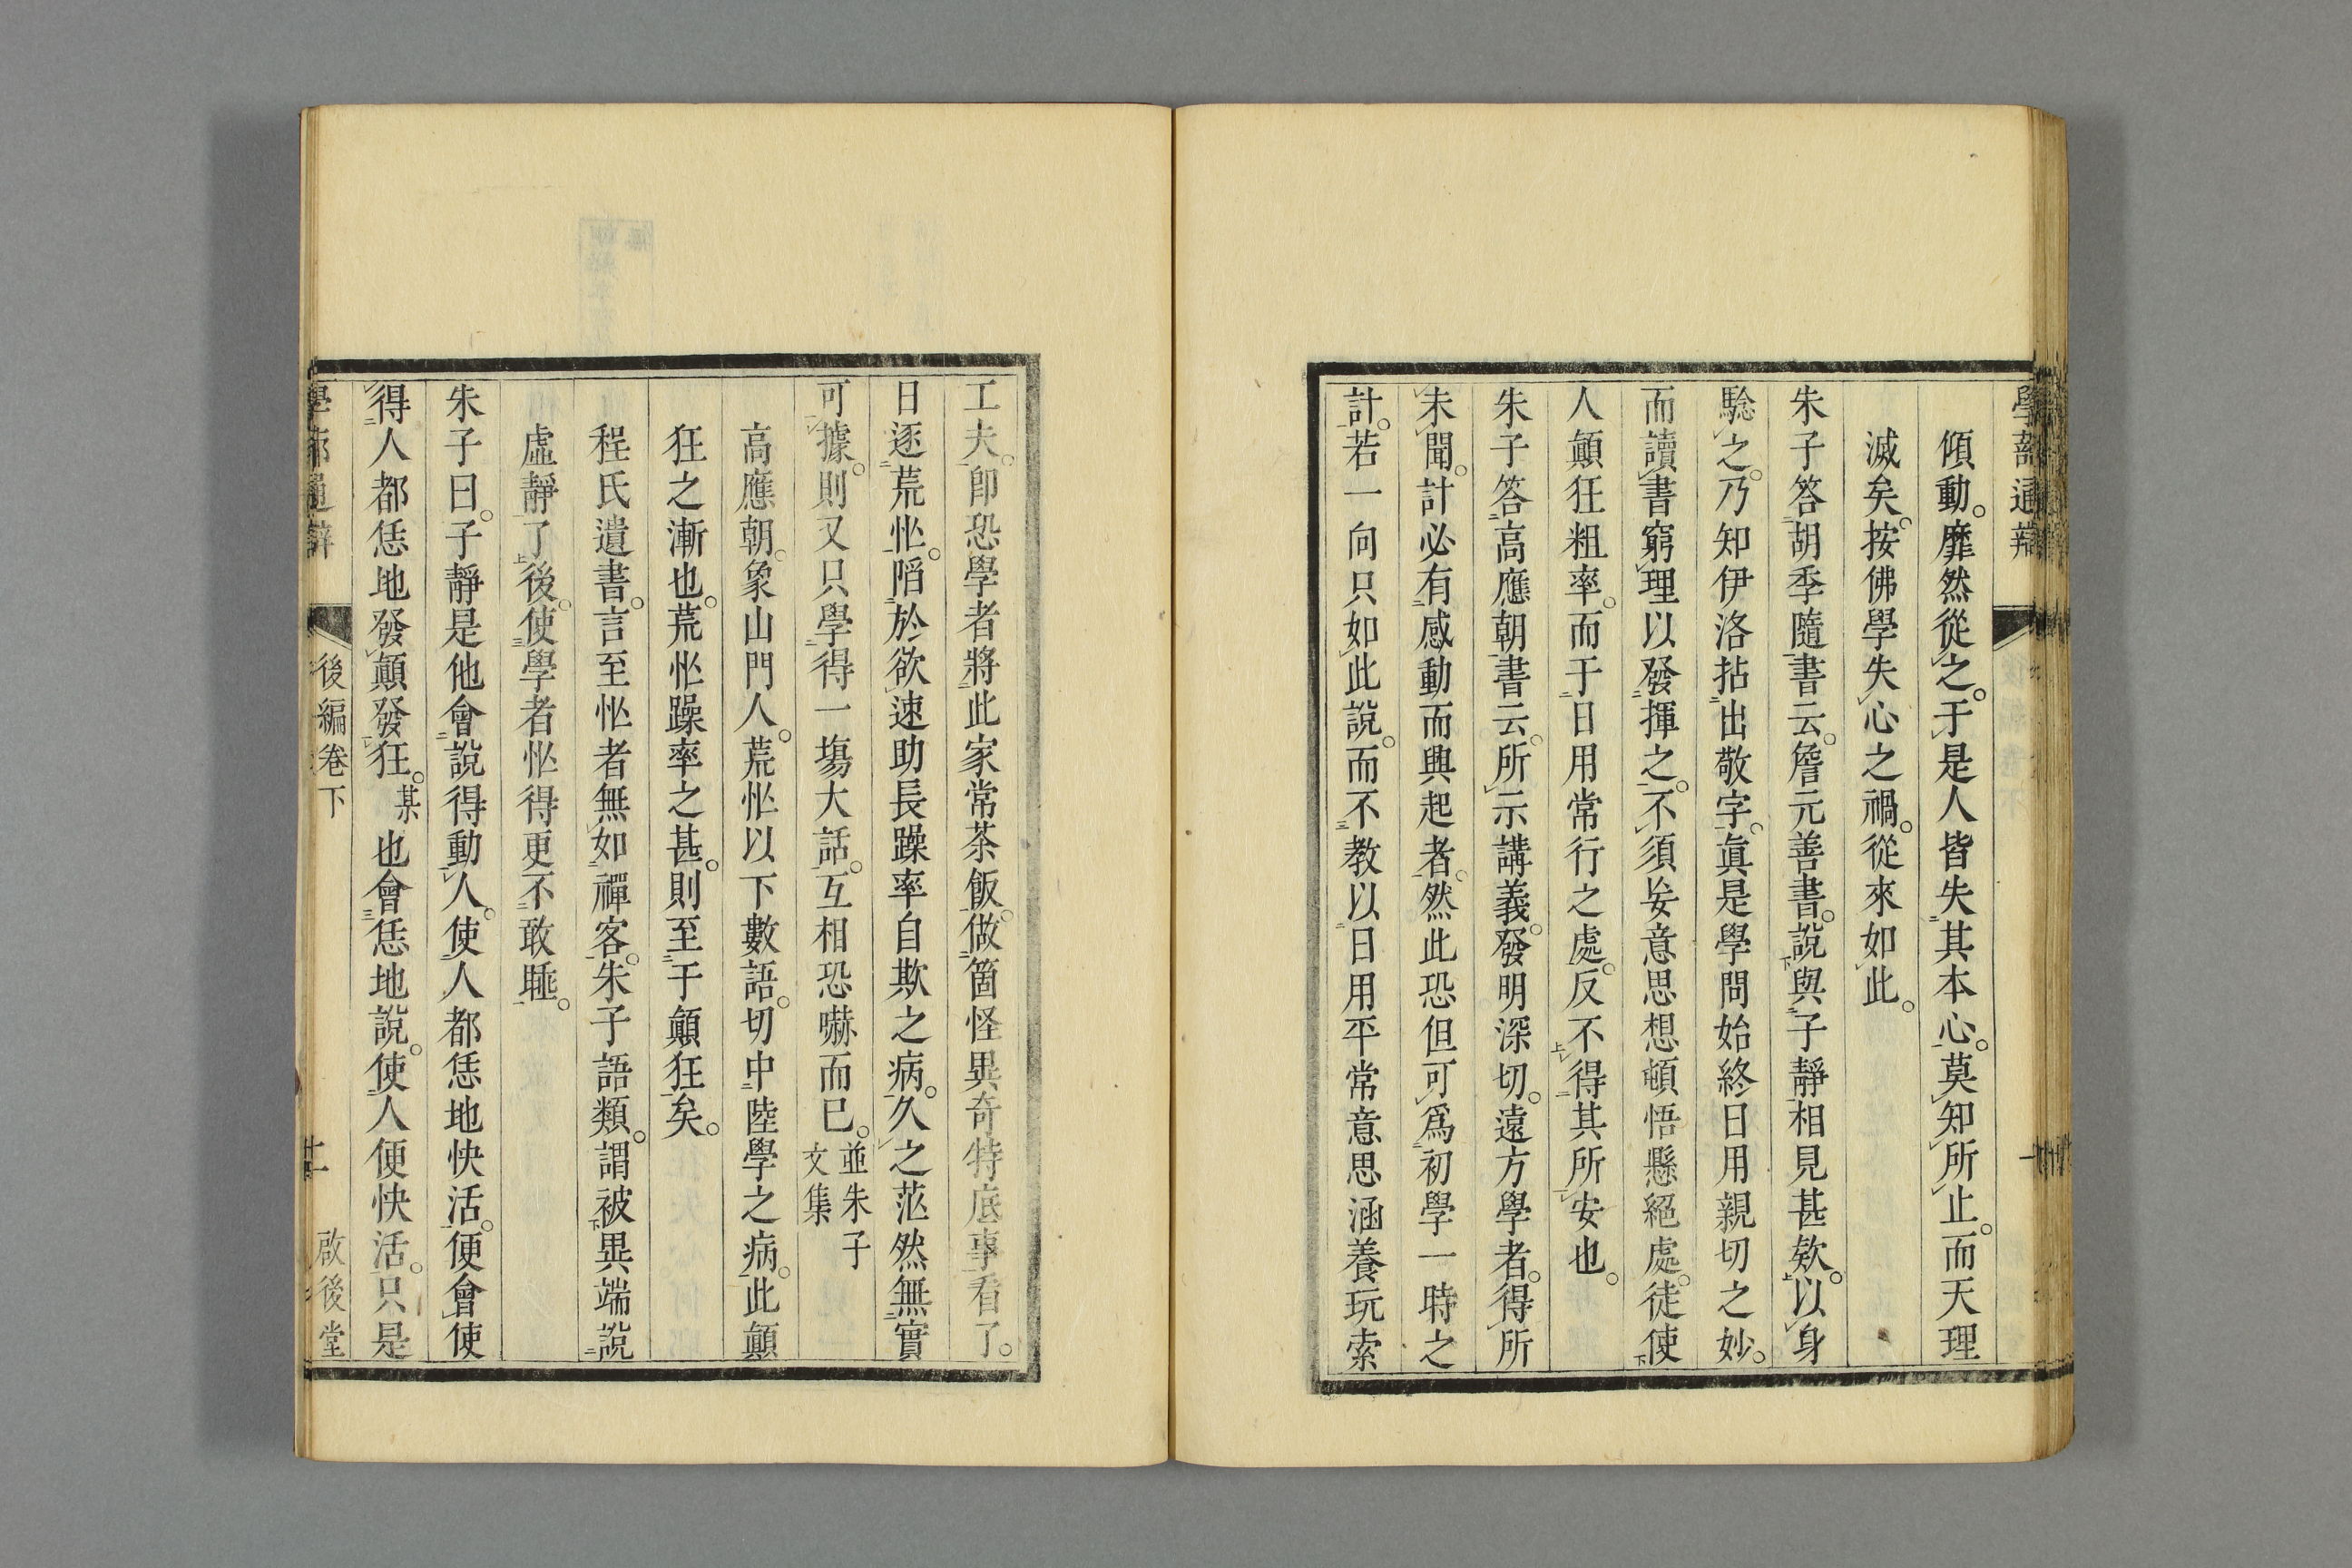 學蔀通辯
傾動。靡然從之。于是人皆失其本心。莫知所止。而天理
滅矣。按佛學失心之禍。從來如此。
朱子答胡季隨書云。詹元善書。說與子靜相見甚欵。以身
驗之。乃知伊洛拈出敬字。眞是學問始終日用親切之妙。
而讀書窮理以發揮之。不須妄意思想頓悟懸絕處。徒使
人顛狂粗率。而于日用常行之處。反不得其所安也。
朱子答高應朝書云。所示講義。發明深切。遠方學者。得所
未聞。計必有感動而興起者。然此恐但可爲初學一時之
計。若一向只如此說。而不教以日用平常意思涵養玩索
工夫。卽恐學者將此家常茶飯。做箇怪異奇特底事看了。
日逐荒忙。陷於欲速助長躁率自欺之病。久之茫然無實
可據。則又只學得一塲大話。互相恐嚇而已。並朱子
文集
高應朝。象山門人。荒忙以下數語。切中陸學之病。此顛
狂之漸也。荒忙躁率之甚。則至于顛狂矣。
程氏遺書。言至忙者無如禪客。朱子語類。謂被異端說
虛靜了後。使學者忙得更不敢睡。
朱子曰。子靜是他會說得動人。使人都恁地快活。便會使
得人都恁地發顛發狂。某也會恁地說。使人便快活。只是
學蔀通辯
後編卷下
十一
啟後堂